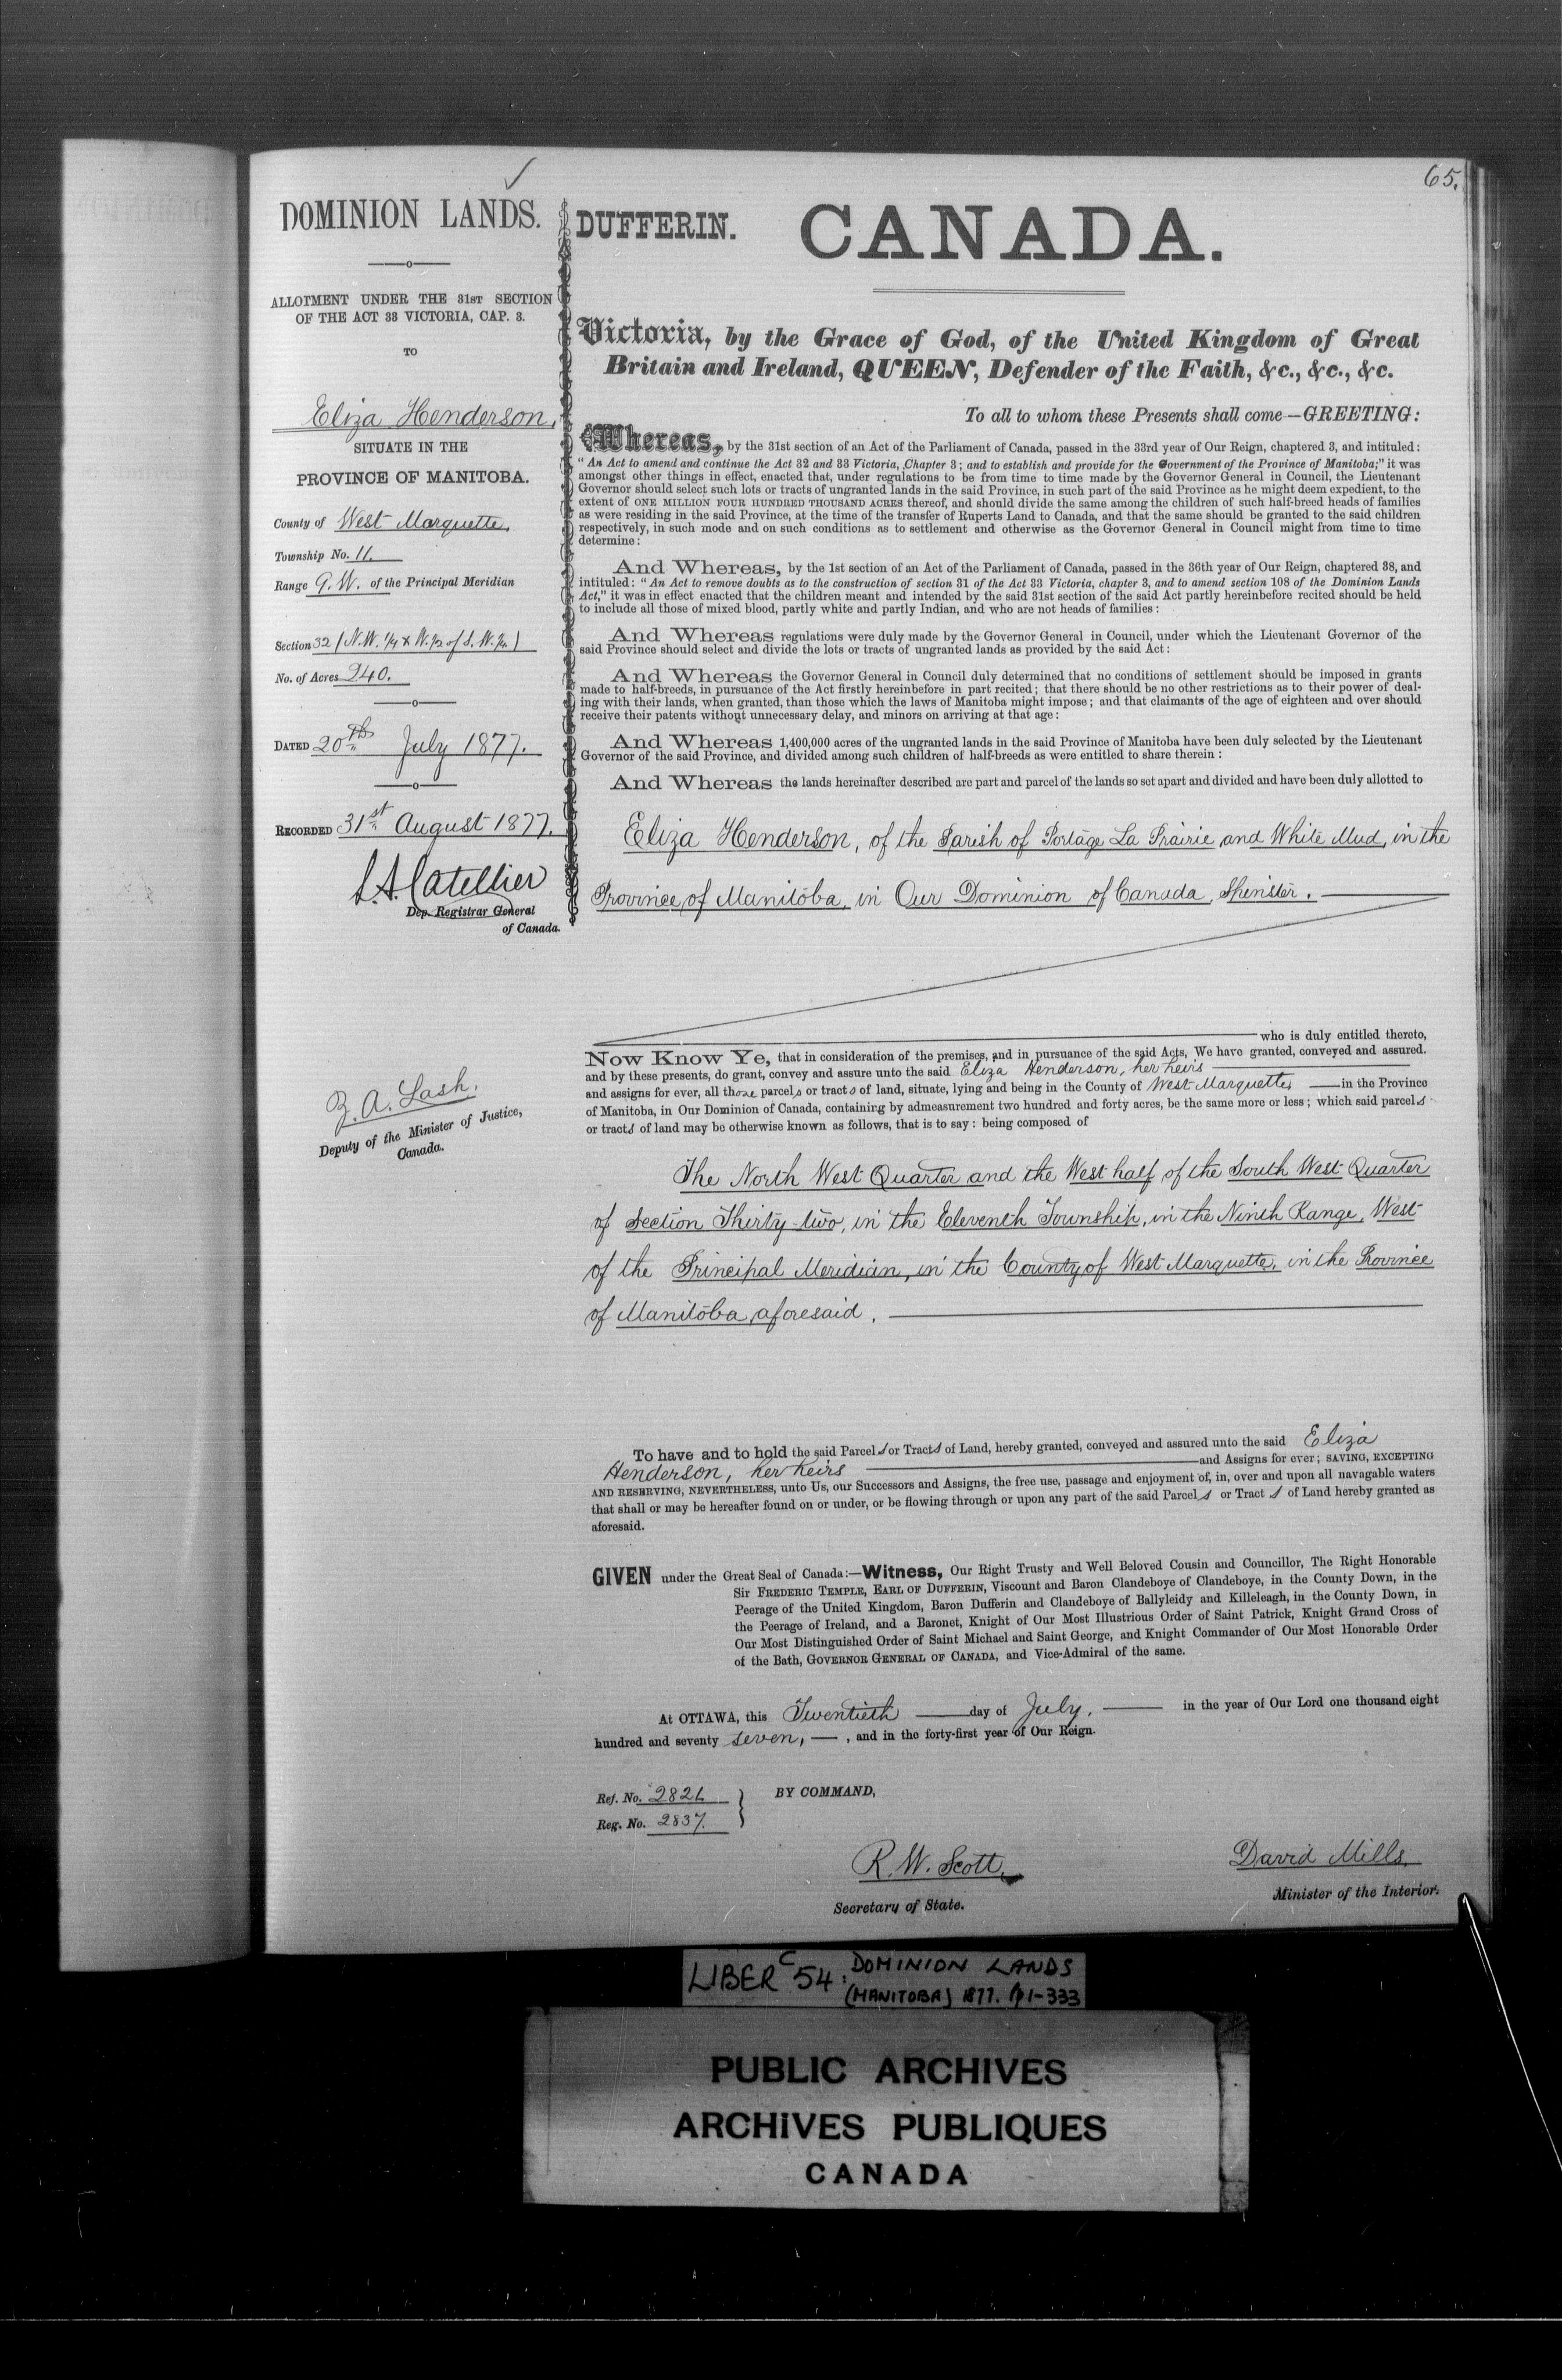 65.
DOMINION LANDS.
ALLOTMENT UNDER THE 31ST SECTION
OF THE ACT 33 VICTORIA, CAP. 3.
TO
Eliza Henderson,
SITUATE IN THE
PROVINCE OF MANITOBA.
County of West Marquette,
Township No. 11.
Range 9. W. of the Principal Meridian
Section 32 (N.W. 1/4 & W. 1/2 of S. W. 1/4)
No. of Acres 240.
DATED 20th July 1877.
RECORDED 31st August 1877.
L.A. Catellier
Dep. Registrar General
of Canada.
Z. A. Lash,
Deputy of the Minister of Justice,
Canada.
DUFFERIN. CANADA.
Victoria, by the Grace of God, of the United Kingdom of Great
Britain and Ireland, QUEEN, Defender of the Faith, &c., &c., &c.
To all to whom these Presents shall come—GREETING:
Whereas, by the 31st section of an Act of the Parliament of Canada, passed in the 33rd year of Our Reign, chaptered 3, and intituled:
"An Act to amend and continue the Act 32 and 33 Victoria, Chapter 3; and to establish and provide for the Government of the Province of Manitoba;" it was
amongst other things in effect, enacted that, under regulations to be from time to time made by the Governor General in Council, the Lieutenant
Governor should select such lots or tracts of ungranted lands in the said Province, in such part of the said Province as he might deem expedient, to the
extent of ONE MILLION FOUR HUNDRED THOUSAND ACRES thereof, and should divide the same among the children of such half-breed heads of families
as were residing in the said Province, at the time of the transfer of Ruperts Land to Canada, and that the same should be granted to the said children
respectively, in such mode and on such conditions as to settlement and otherwise as the Governor General in Council might from time to time
determine:
And Whereas, by the 1st section of an Act of the Parliament of Canada, passed in the 36th year of Our Reign, chaptered 38, and
intituled: "An Act to remove doubts as to the construction of section 31 of the Act 33 Victoria, chapter 3, and to amend section 108 of the Dominion Lands
Act," it was in effect enacted that the children meant and intended by the said 31st section of the said Act partly hereinbefore recited should be held
to include all those of mixed blood, partly white and partly Indian, and who are not heads of families:
And Whereas regulations were duly made by the Governor General in Council, under which the Lieutenant Governor of the
said Province should select and divide the lots or tracts of ungranted lands as provided by the said Act:
And Whereas the Governor General in Council duly determined that no conditions of settlement should be imposed in grants
made to half-breeds, in pursuance of the Act firstly hereinbefore in part recited; that there should be no other restrictions as to their power of deal-
ing with their lands, when granted, than those which the laws of Manitoba might impose; and that claimants of the age of eighteen and over should
receive their patents without unnecessary delay, and minors on arriving at that age:
And Whereas 1,400,000 acres of the ungranted lands in the said Province of Manitoba have been duly selected by the Lieutenant
Governor of the said Province, and divided among such children of half-breeds as were entitled to share therein:
And Whereas the lands hereinafter described are part and parcel of the lands so set apart and divided and have been duly allotted to
Eliza Henderson, of the Parish of Portage La Prairie and White Mud, in the
Province of Manitoba, in Our Dominion of Canada, Spinster.
who is duly entitled thereto,
Now Know Ye, that in consideration of the premises, and in pursuance of the said Acts, We have granted, conveyed and assured.
and by these presents, do grant, convey and assure unto the said Eliza Henderson, her heirs
and assigns for ever, all those parcels or tracts of land, situate, lying and being in the County of West Marquette, in the Province
of Manitoba, in Our Dominion of Canada, containing by admeasurement two hundred and forty acres, be the same more or less; which said parcels
or tracts of land may be otherwise known as follows, that is to say: being composed of
The North West Quarter and the West half of the South West Quarter
of Section Thirty-two, in the Eleventh Township, in the Ninth Range, West
of the Principal Meridian, in the County of West Marquette, in the Province
of Manitoba aforesaid.
To have and to hold the said Parcels or Tracts of Land, hereby granted, conveyed and assured unto the said Eliza
Henderson, her heirs and Assigns for ever; SAVING, EXCEPTING
AND RESERVING, NEVERTHELESS, unto Us, our Successors and Assigns, the free use, passage and enjoyment of, in, over and upon all navagable waters
that shall or may be hereafter found on or under, or be flowing through or upon any part of the said Parcels or Tracts of Land hereby granted as
aforesaid.
GIVEN under the Great Seal of Canada:—Witness, Our Right Trusty and Well Beloved Cousin and Councillor, The Right Honorable
Sir FREDERIC TEMPLE, EARL OF DUFFERIN, Viscount and Baron Clandeboye of Clandeboye, in the County Down, in the
Peerage of the United Kingdom, Baron Dufferin and Clandeboye of Ballyleidy and Killeleagh, in the County Down, in
the Peerage of Ireland, and a Baronet, Knight of Our Most Illustrious Order of Saint Patrick, Knight Grand Cross of
Our Most Distinguished Order of Saint Michael and Saint George, and Knight Commander of Our Most Honorable Order
of the Bath, GOVERNOR GENERAL OF CANADA, and Vice-Admiral of the same.
At OTTAWA, this Twentieth day of July, in the year of Our Lord one thousand eight
hundred and seventy seven, , and in the forty-first year of Our Reign.
Ref. No. 2826
Reg. No. 2837.
BY COMMAND,
R. W. Scott,
Secretary of State.
David Mills,
Minister of the Interior.
LIBER C 54: DOMINION LANDS
(MANITOBA) 1877. Pp 1-333
PUBLIC ARCHIVES
ARCHIVES PUBLIQUES
CANADA